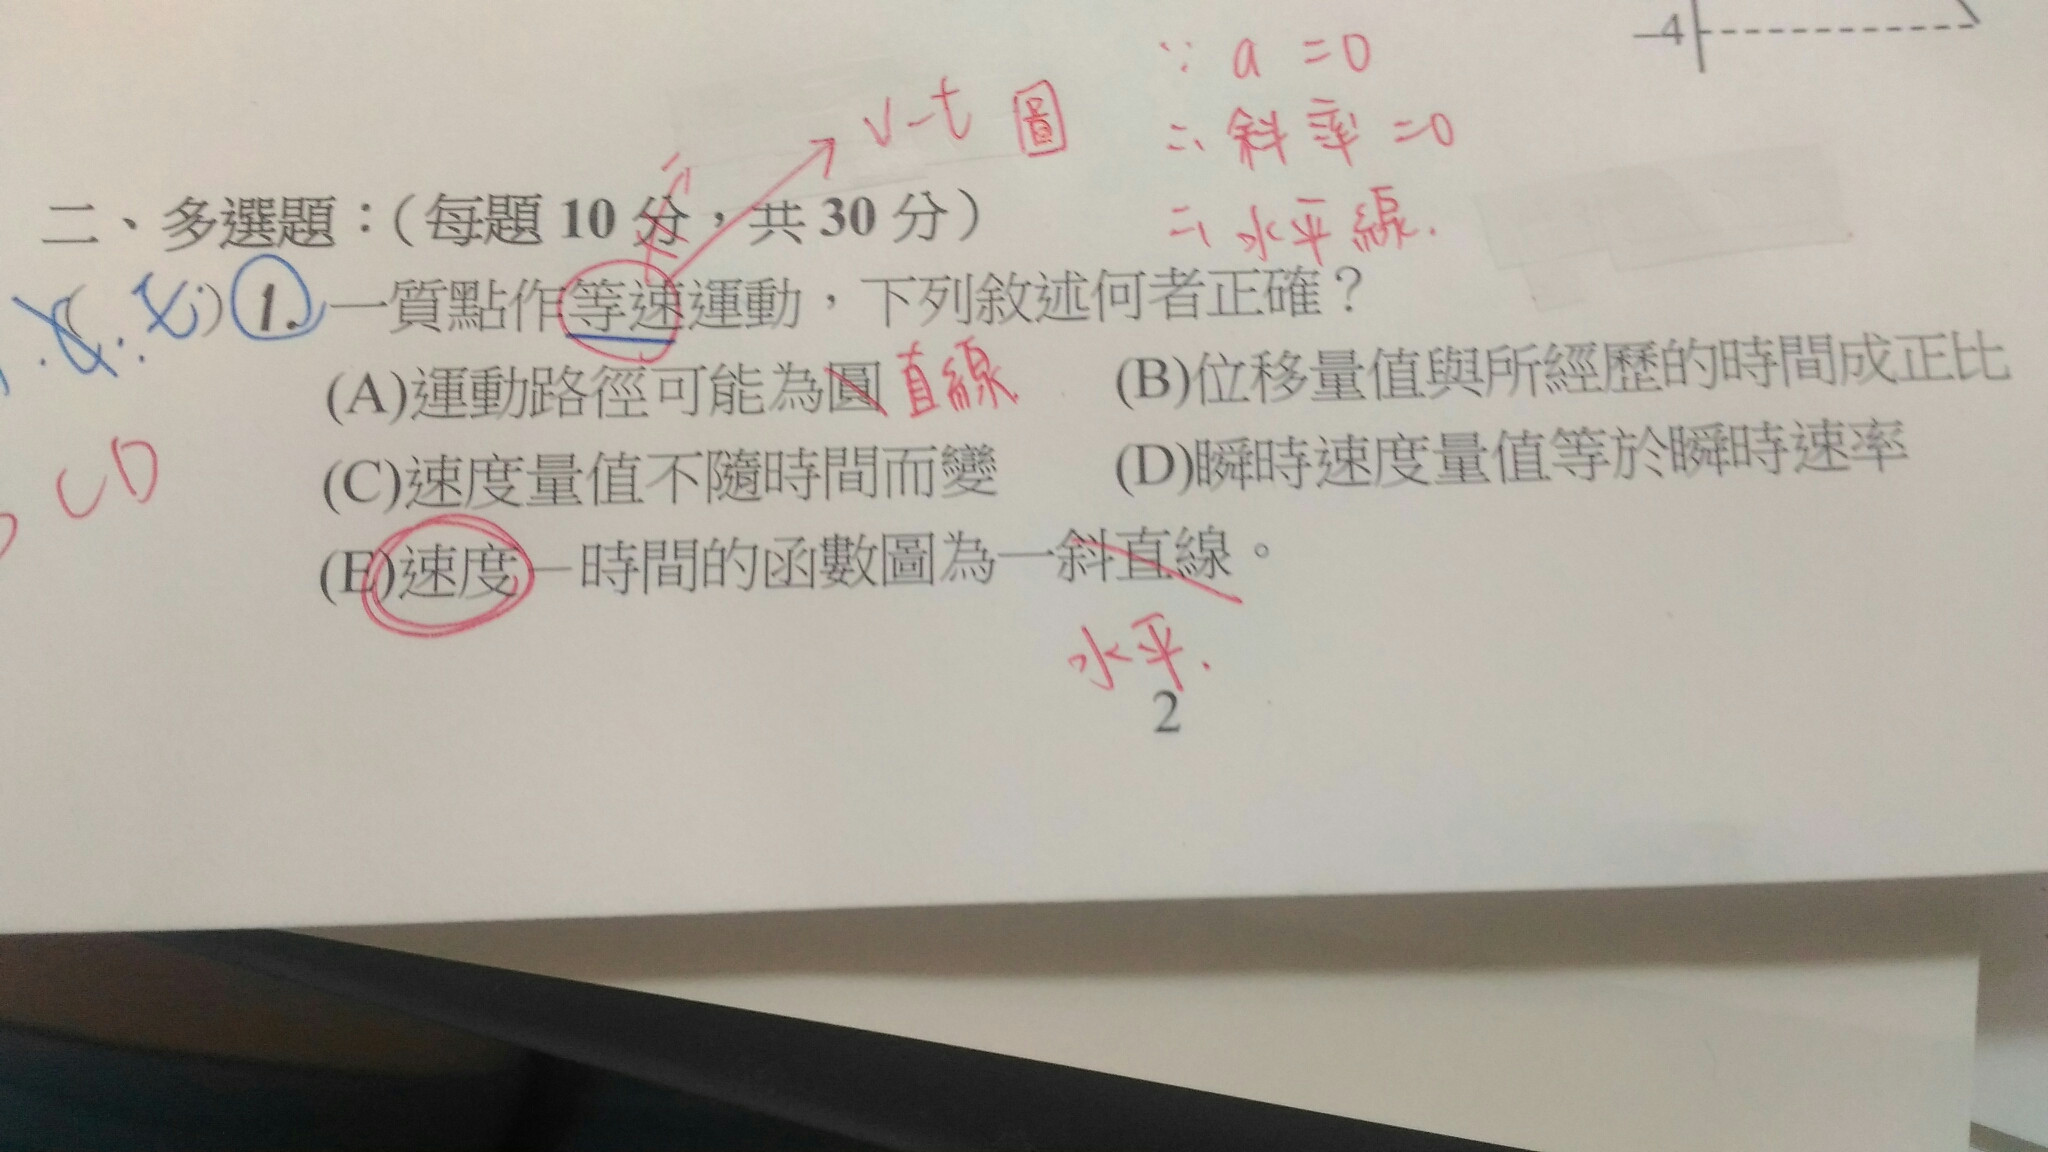 −4
∵ a =0
v-t 圖
∴ 斜率 =0
∴ 水平線.
二、多選題：（每題 10 分，共 30 分）
) 1. 一質點作等速運動，下列敘述何者正確？
(A)運動路徑可能為圓 直線 (B)位移量值與所經歷的時間成正比
CD
(C)速度量值不隨時間而變 (D)瞬時速度量值等於瞬時速率
(E)速度—時間的函數圖為一斜直線。
水平.
2